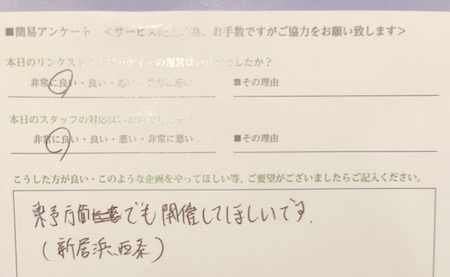 ■簡易アンケート <サービス向上の為、お手数ですがご協力をお願い致します>
本日のリンクストパーティーの運営はいかがでしたか?
非常に良い・良い・悪い・非常に悪い ■その理由
本日のスタッフの対応はいかがでしたか?
非常に良い・良い・悪い・非常に悪い ■その理由
こうした方が良い・このような企画をやってほしい等、ご要望がございましたらご記入ください。
東予方面でも開催してほしいです.
(新居浜、西条)